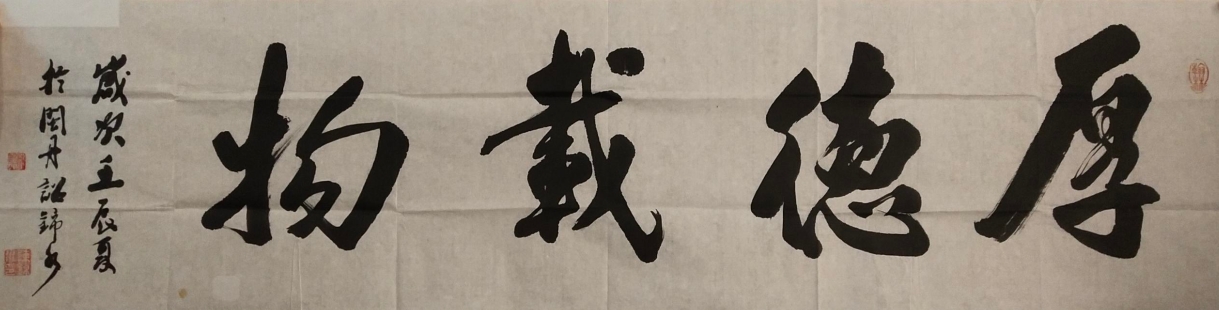 厚德載物
歲次壬辰夏
於閩丹詔錦書